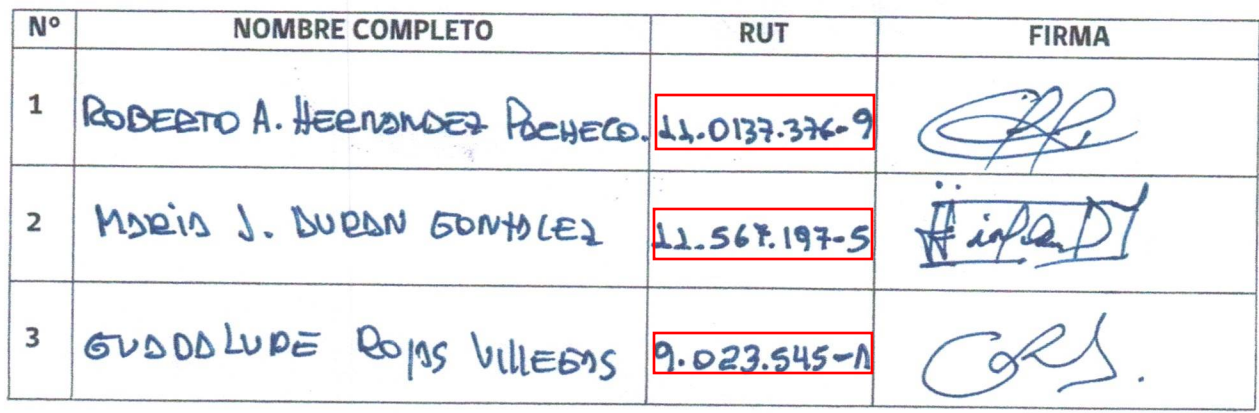 N° NOMBRE COMPLETO RUT FIRMA
1 ROBERTO A. HERNANDEZ PACHECO. 11.0137.376-9
2 MARIA J. DURAN GONZALEZ 11.567.197-5
3 GUADALUPE ROJAS VILLEGAS 9.023.545-1